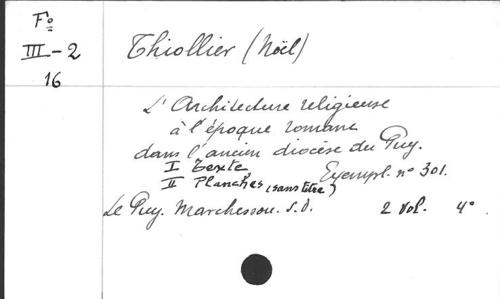 Fo
III-2
16
Thiollier (Noël)
L'Architecture religieuse
à l'époque romane
dans l'ancien diocèse du Puy.
I Texte
II Planches (sans titre) Exempl. n° 301.
Le Puy. Marchessou. S.D. 2 vol. 4°